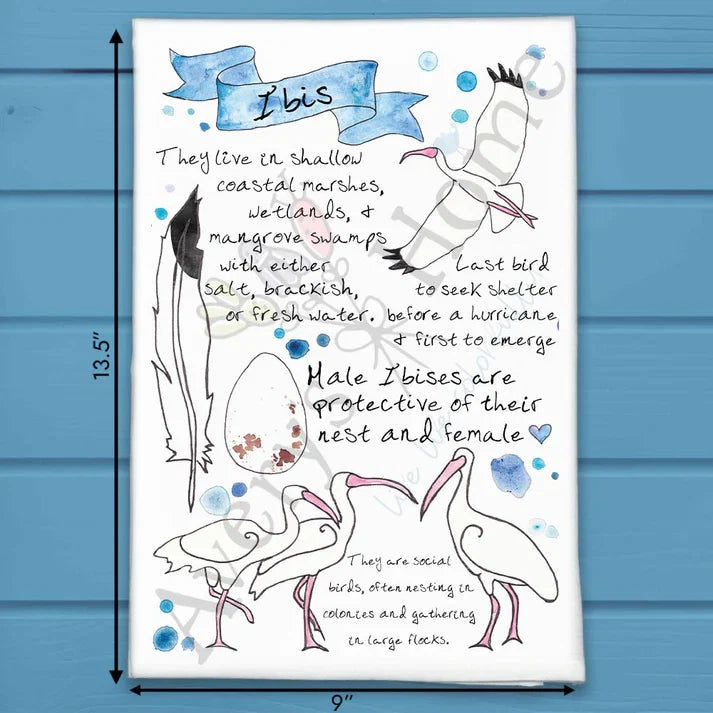 Ibis
They live in shallow
coastal marshes,
wetlands, &
mangrove swamps
with either
salt, brackish,
or fresh water.
Last bird
to seek shelter
before a hurricane
& first to emerge
Male Ibises are
protective of their
nest and female
They are social
birds, often nesting in
colonies and gathering
in large flocks.
13.5"
9"
Avery's Home